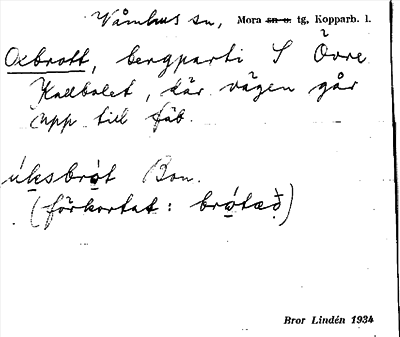 Våmhus sn, Mora sn o. tg, Kopparb. l.
Oxbrott, bergparti S Övre
Kallbolet, där vägen går
upp till fäb.
úksbrọt Bon.
(förkortat: brọ́tæð)
Bror Lindén 1934